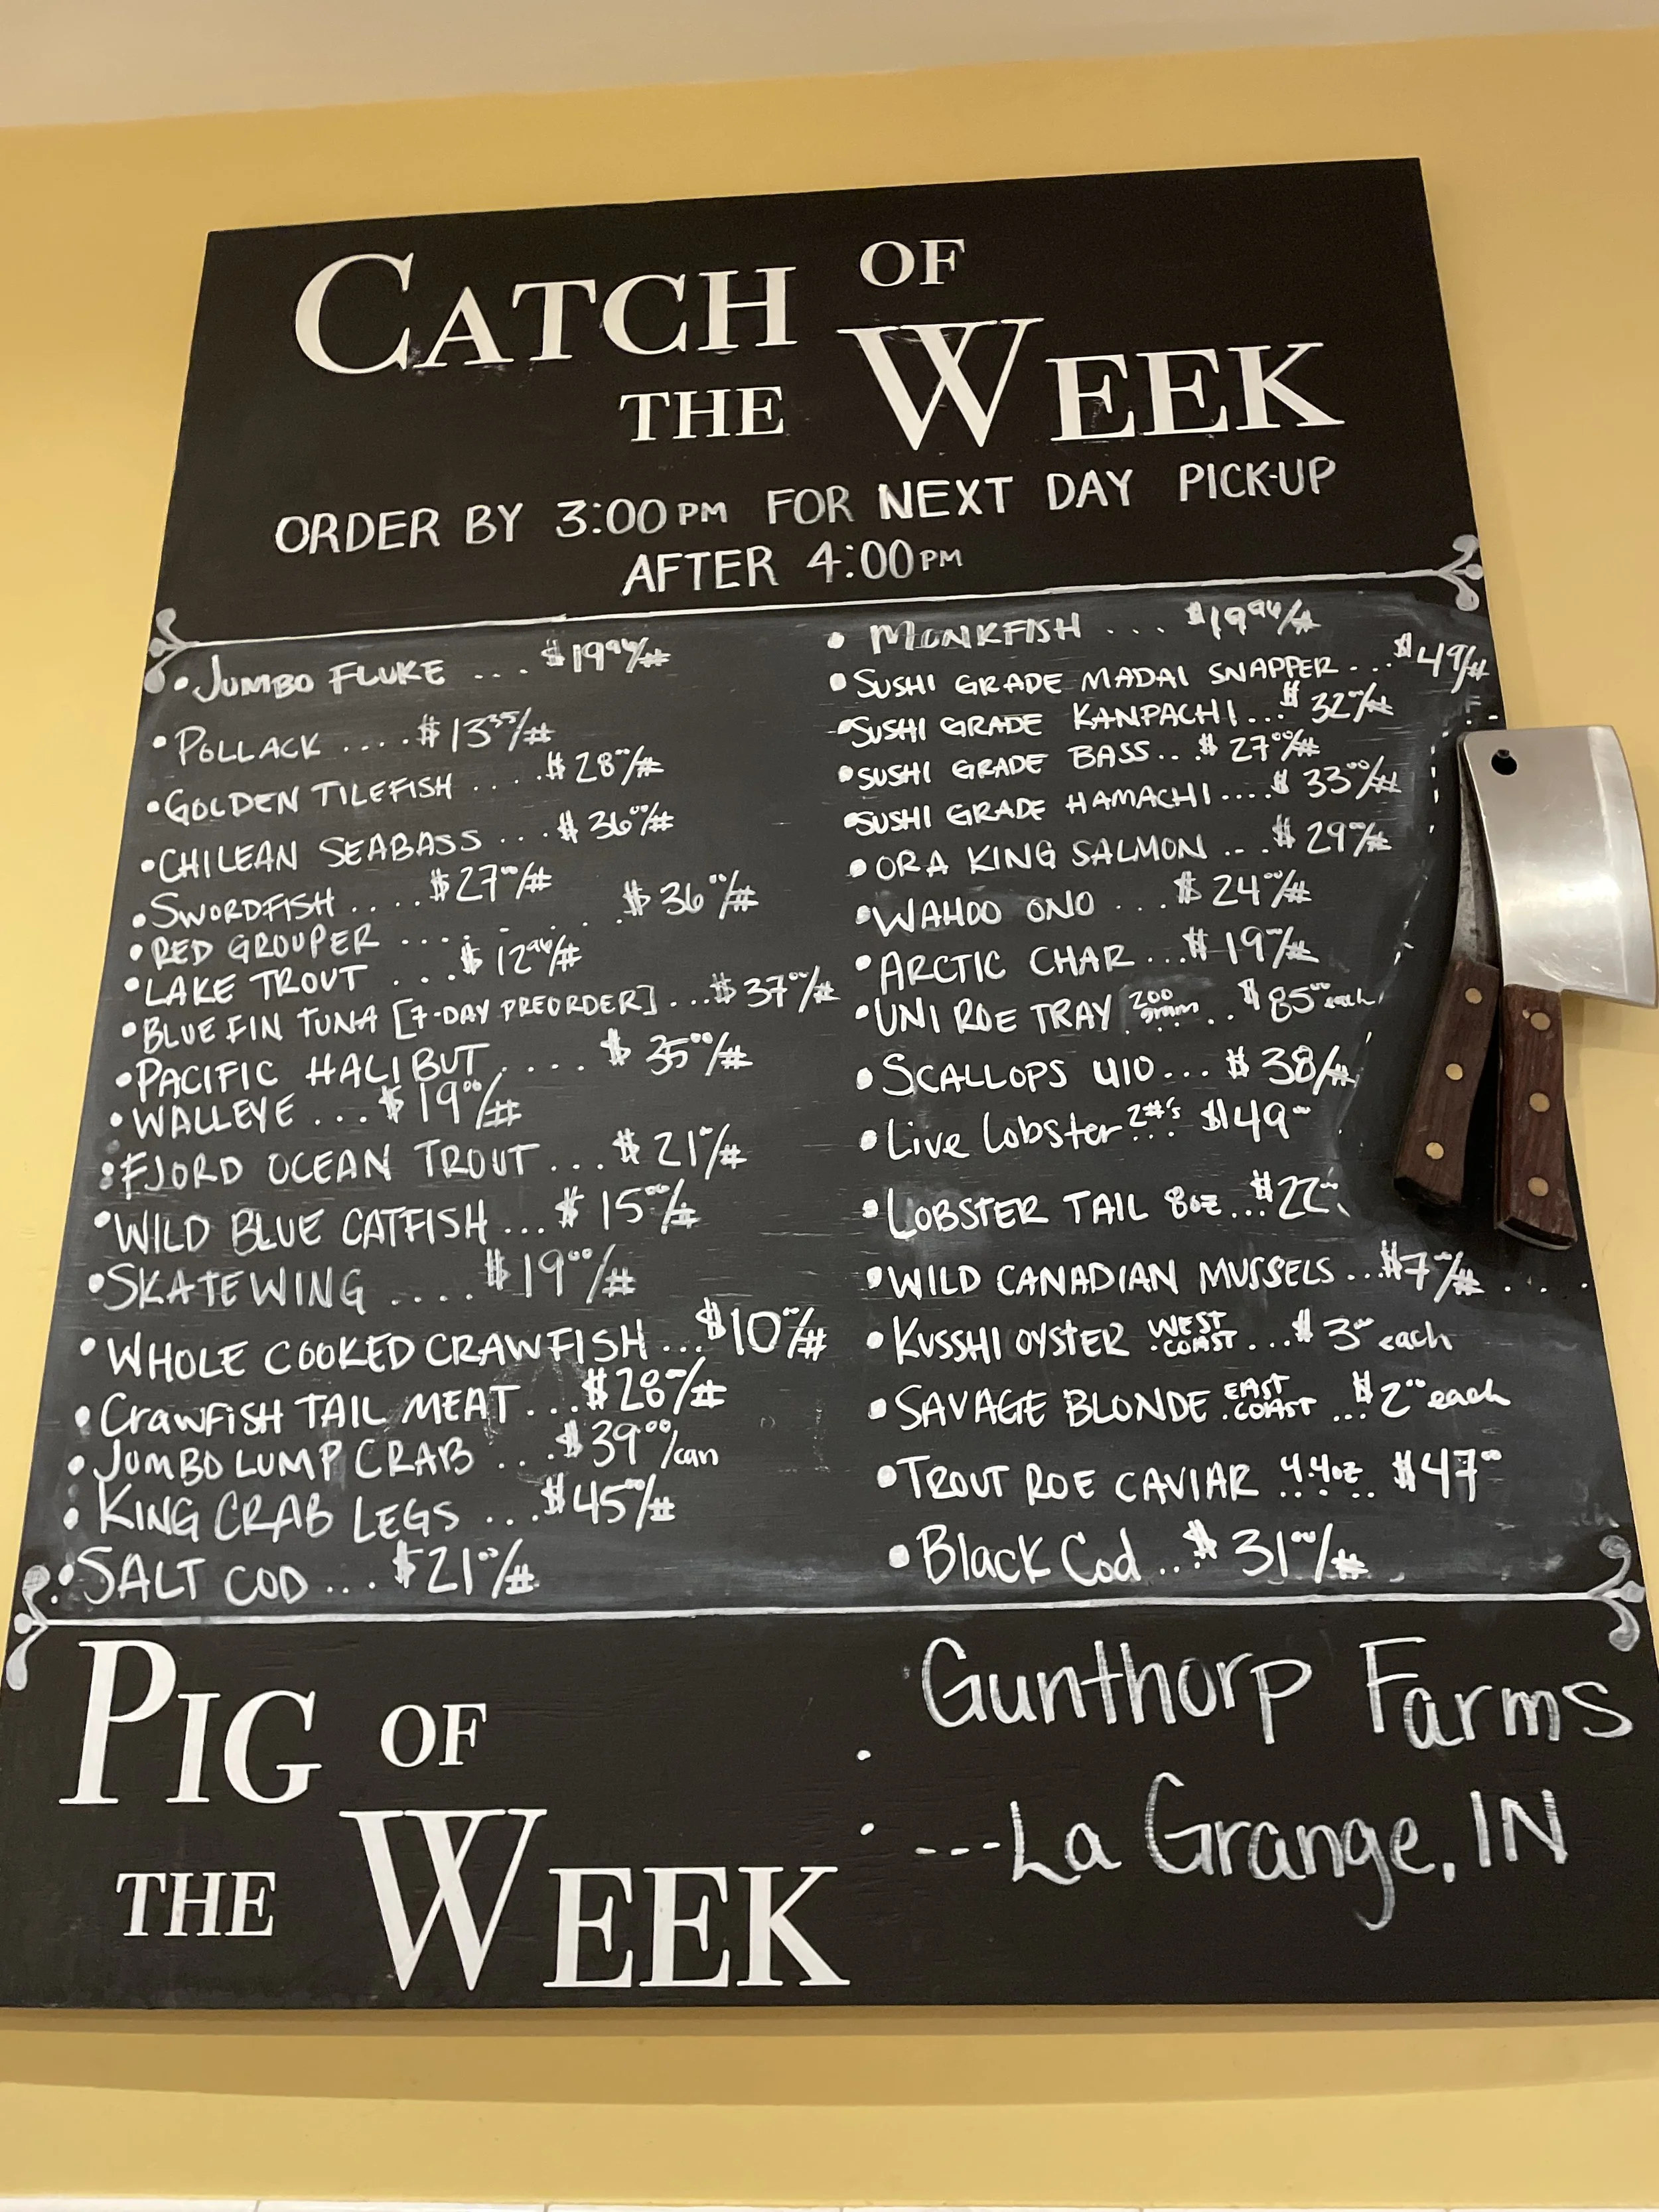 CATCH OF
THE WEEK
ORDER BY 3:00PM FOR NEXT DAY PICK-UP
AFTER 4:00PM
• JUMBO FLUKE ... $19.96/#
• POLLACK .... $13.35/#
• GOLDEN TILEFISH .... $28.00/#
• CHILEAN SEABASS ... $36.00/#
• SWORDFISH .... $27.00/#
• RED GROUPER ....... $36.00/#
• LAKE TROUT ... $12.96/#
• BLUE FIN TUNA [7-DAY PREORDER] ... $37.00/#
• PACIFIC HALIBUT .... $35.00/#
• WALLEYE ... $19.00/#
• FJORD OCEAN TROUT ... $21/#
• WILD BLUE CATFISH ... $15.00/#
• SKATEWING .... $19.00/#
• WHOLE COOKED CRAWFISH ... $10/#
• CRAWFISH TAIL MEAT ... $28/#
• JUMBO LUMP CRAB ... $39.00/can
• KING CRAB LEGS ... $45.00/#
• SALT COD ... $21.00/#
• MONKFISH ... $19.96/#
• SUSHI GRADE MADAI SNAPPER ... $49/#
• SUSHI GRADE KANPACHI ... $32/#
• SUSHI GRADE BASS ... $27.00/#
• SUSHI GRADE HAMACHI .... $33.00/#
• ORA KING SALMON ... $29/#
• WAHOO ONO ... $24.00/#
• ARCTIC CHAR ... $19/#
• UNI ROE TRAY 200 gram .. $85.00 each
• SCALLOPS U10 ... $38/#
• Live Lobster 2#'s ... $49
• LOBSTER TAIL 8oz ... $22
• WILD CANADIAN MUSSELS ... $7/#
• KUSSHI OYSTER WEST COAST ... $3.00 each
• SAVAGE BLONDE EAST COAST ... $2.00 each
• TROUT ROE CAVIAR 4.4oz $47.00
• Black Cod ... $31.00/#
PIG OF
THE WEEK
Gunthorp Farms
---La Grange, IN